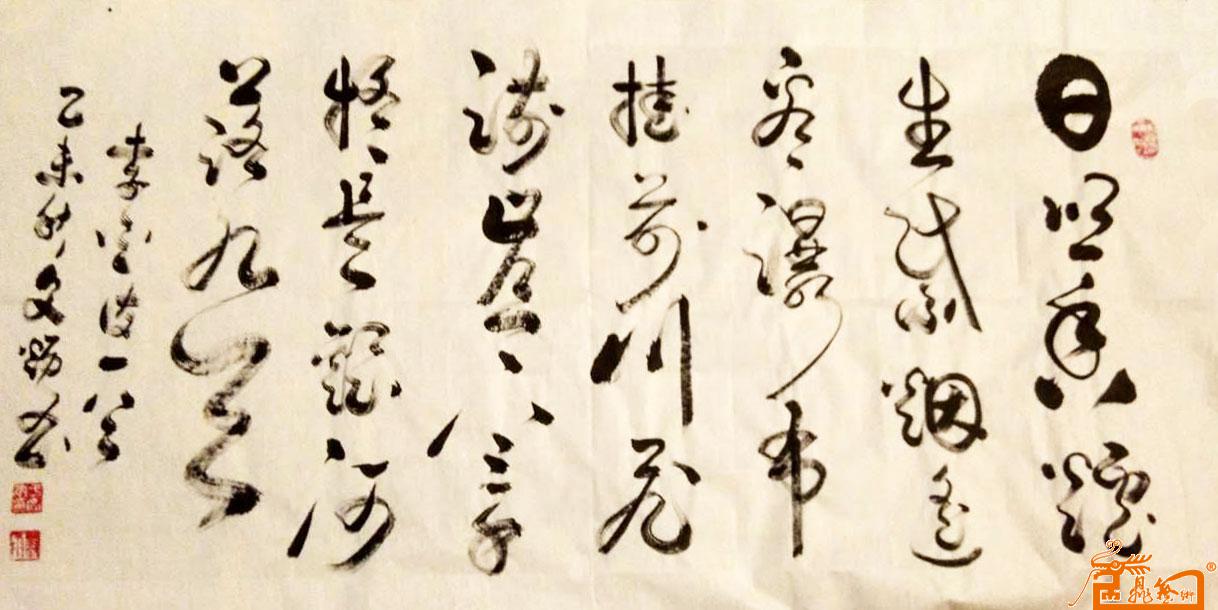 日照香爐
生紫烟遥
看瀑布
挂前川飛
流直下三千
疑是銀河
落九天
李白诗一首
乙未秋文书